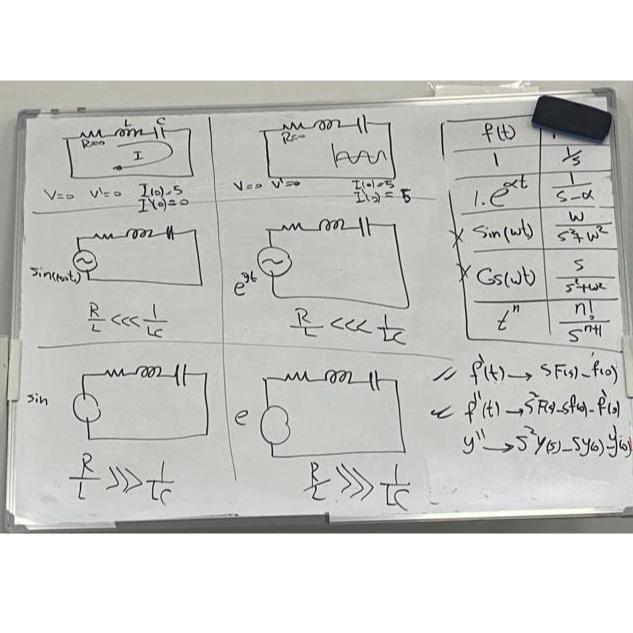 L C
R=0
I
V=0 V'=0 I(0)=5
I'(0)=0
R=0
V=0 V'=0 I(0)=5
I'(0)=5
sin(
e^9t
R/L <<< 1/LC
R/L <<< 1/LC
sin
e
R/L >>> 1/LC
R/L >>> 1/LC
f(t)
1 1/s
1.e^αt 1/s-α
x Sin(wt) w/s²+w²
x Cos(wt) s/s²+w²
t^n n!/s^n+1
f'(t) → SF(s)-f(0)
f''(t) → S²F(s)-sf(0)-f'(0)
y'' → S²Y(s)-Sy(0)-y'(0)